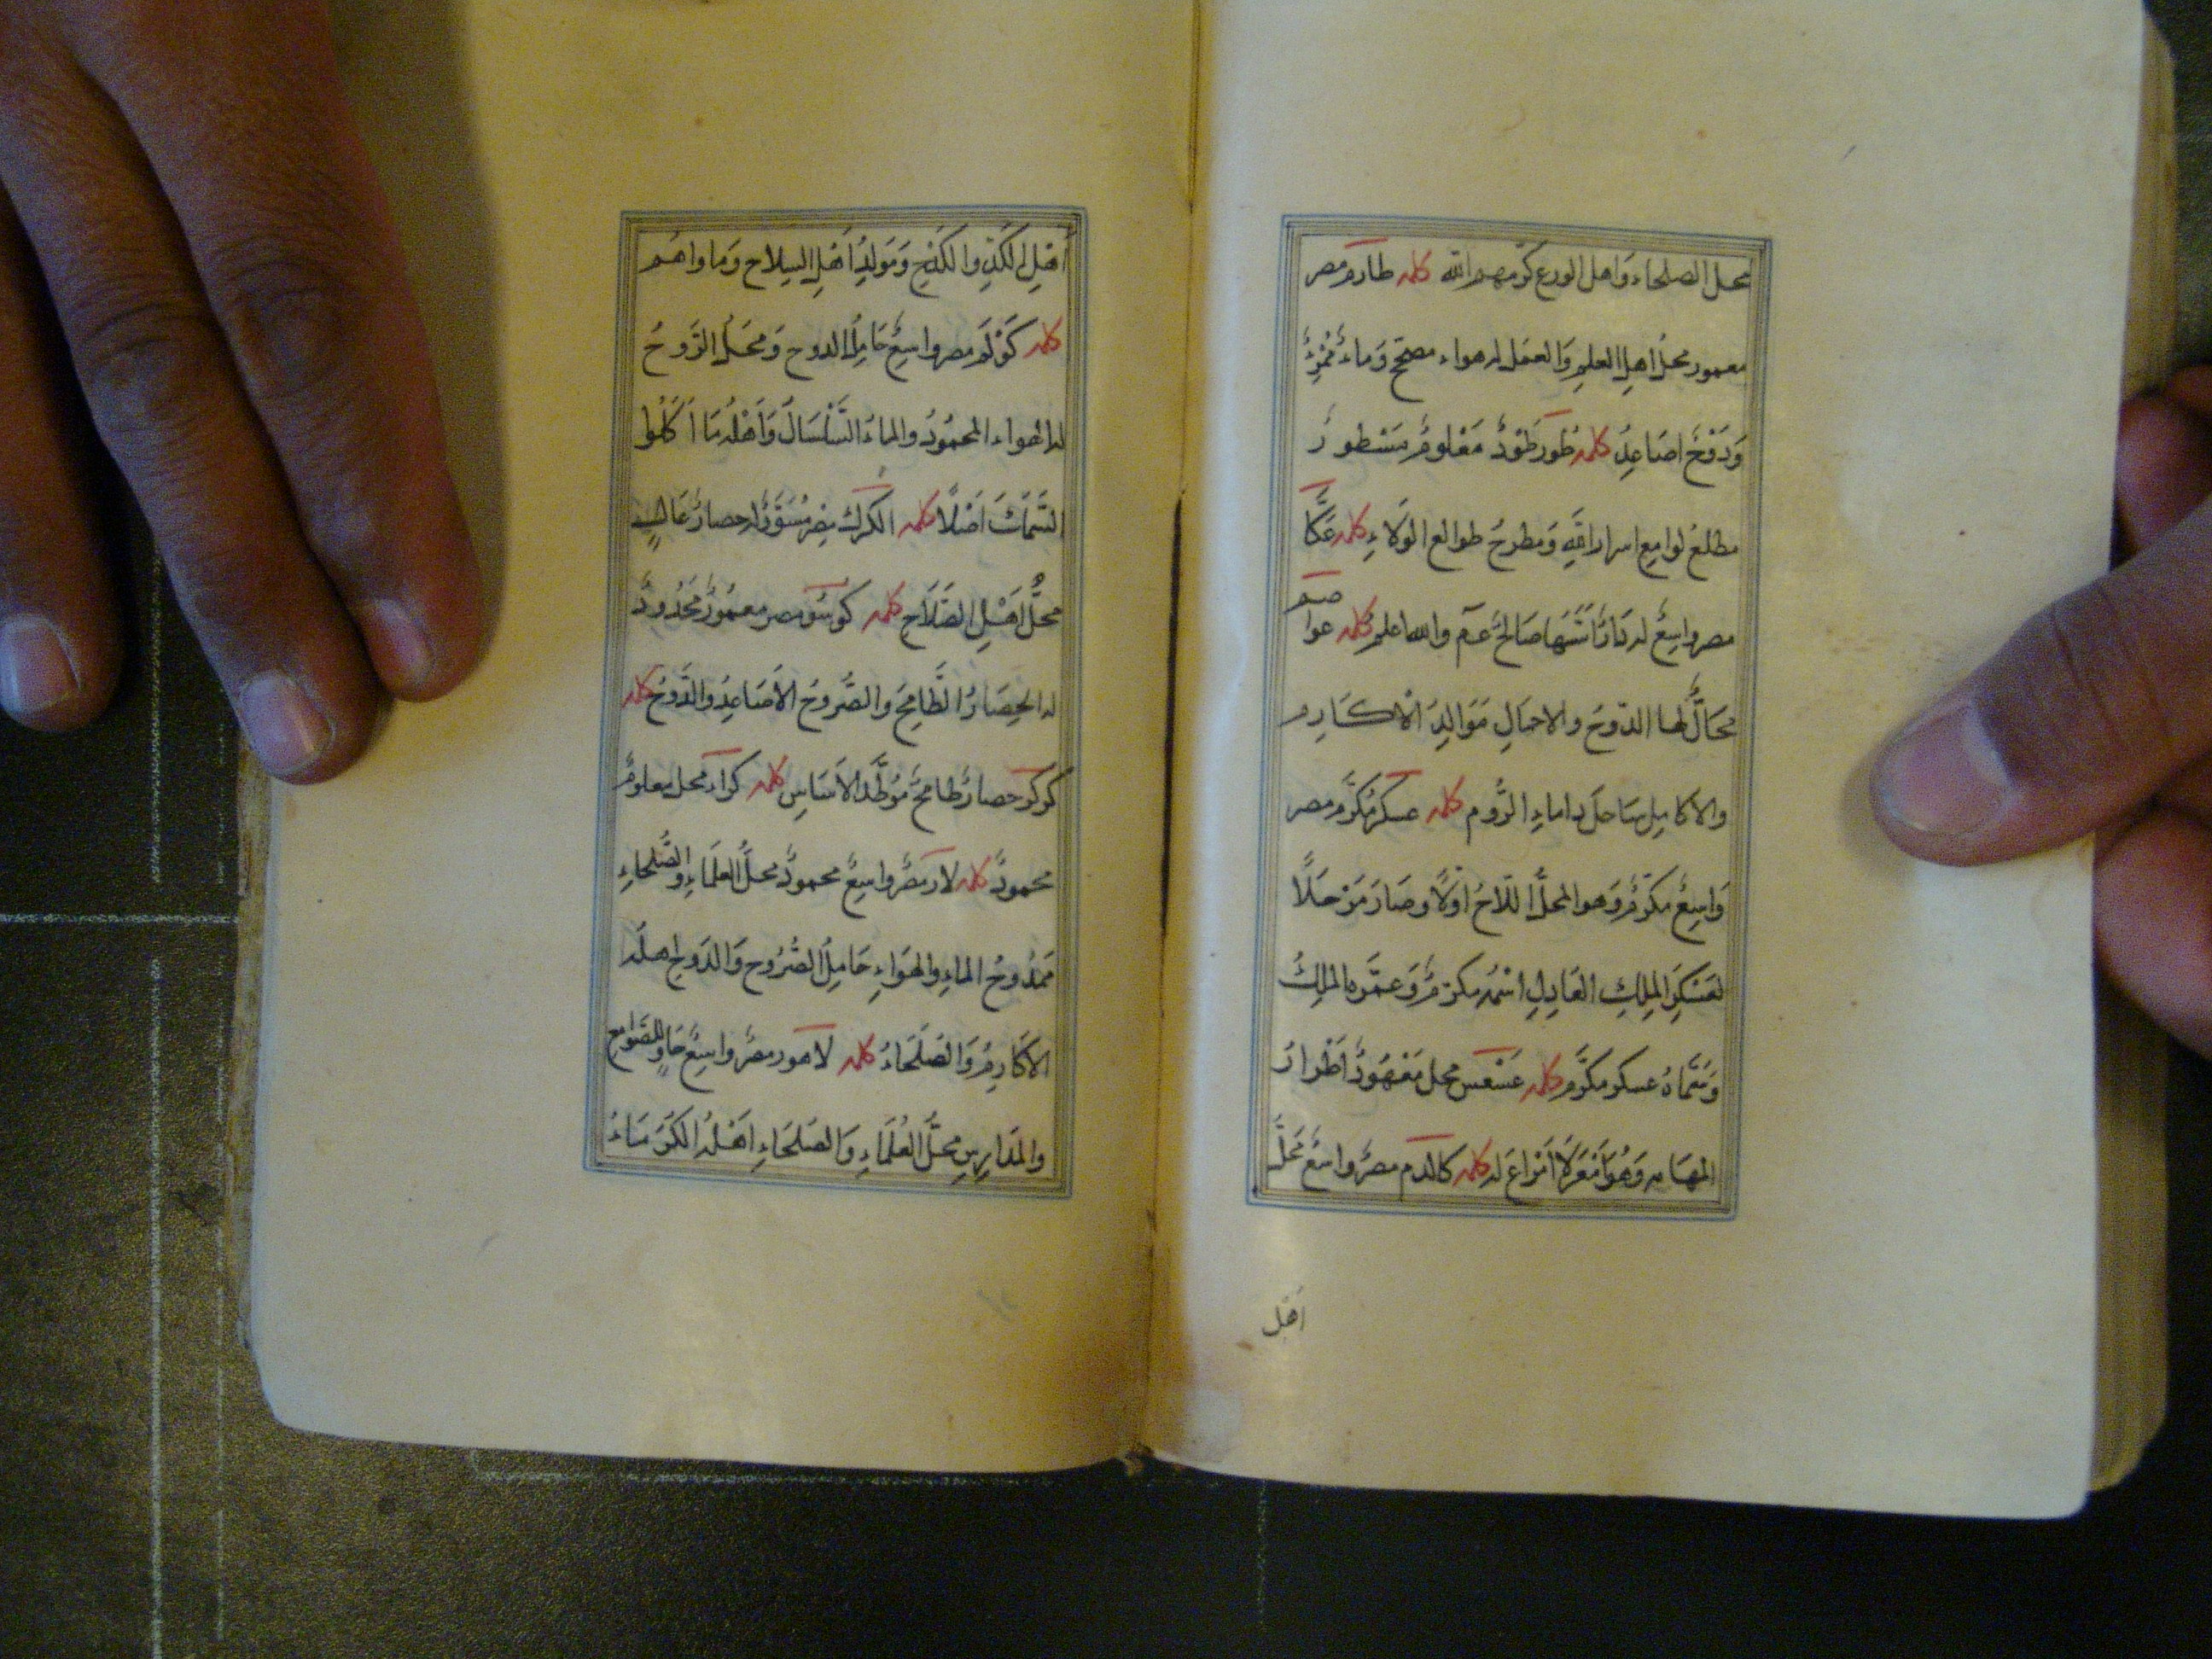 محل الصلحاء وَاهل الورع كرّمهم الله كلمه طارم مصر
معمور محلّ اهل العلم وَالعمل له هواء مصحّ وَماءٌ مُمْرِءٌ
وَدَوْحٌ اصَاعِدُ كلمه طُور طَوْدٌ مَعْلومٌ مسْطورٌ
مطلعُ لوامع اسرار الله وَمطرحُ طوالع الوَلاءِ كلمه عَكَّا
مصر واسِعٌ له دَارٌ اسَّسَهَا صَالحٌ عم والله اعلم كلمه عواصم
محَالٌّ لها الدّوحُ والاحمالِ مَوَالِدُ الْاكَارِم
والاكامِل سَاحلَ داماءِ الرُّوم كلمه عسكر مُكرَّم مصر
وَاسِعٌ مكرّمٌ وَهو المحلُّ اللّاحُ اوّلًا وصَارَ مَرْحَلًا
لعَسْكَرِ الملِكِ العَادِلِ اسْمُه مكرّمٌ وَعمَّره الملِكُ
وَسَمَّاهُ عسكر مكرَّم كلمه عَسْعَس محل مَعْهُودٌ اَطْوارُ
المهَامه وَهُوَ امْعَرُ لَا امْرَاعَ له كلمه كالدم مصرٌ واسعٌ محَلُّ
اَهْل
اَهْلِ الكَدِّ والكَدْحِ وَمَولِدُ اَهْلِ السِلاح وَماواهُم
كلمه كَوْلَم مصر واسِعٌ حَامِلُ الدوح وَمَحَلُّ الرَّوحُ
له الهواء المحمُودُ والماءُ السَّلْسَالُ وَاَهْلُه مَا اَكَلُوا
السَّمَكَ اَصْلًا كلمه الكرك مِصْرٌ مُسَوَّرٌ له حصارٌ عَالٍ
محَلُّ اَهْلِ الصَّلَاحِ كلمه كوسُو مصر معمُورٌ مَحْدُودٌ
له الحِصَارُ الطَّامِحُ والصُّرُوحُ الاَصَاعِدُ والدَّوحُ كلمه
كركر حصارٌ طامحٌ مُوَطَّدُ الاَسَاسِ كلمه كراء محل معلومٌ
محمودٌ كلمه لار مصرٌ واسِعٌ محمودٌ محلُّ العلَمَاءِ والصُّلحاءِ
مَمْدُوحُ الماءِ والهَوَاءِ حَامِلُ الصُّرُوح وَالدَوح اهلُه
الاكَارِمُ وَالصُلَحَاءُ كلمه لَاهُور مصرٌ واسِعٌ حَاوٍ للصَّوامع
والمَدَارِسِ محَلُّ العُلَمَاءِ وَالصلحَاءِ اَهْلُه الكُرَمَاءُ